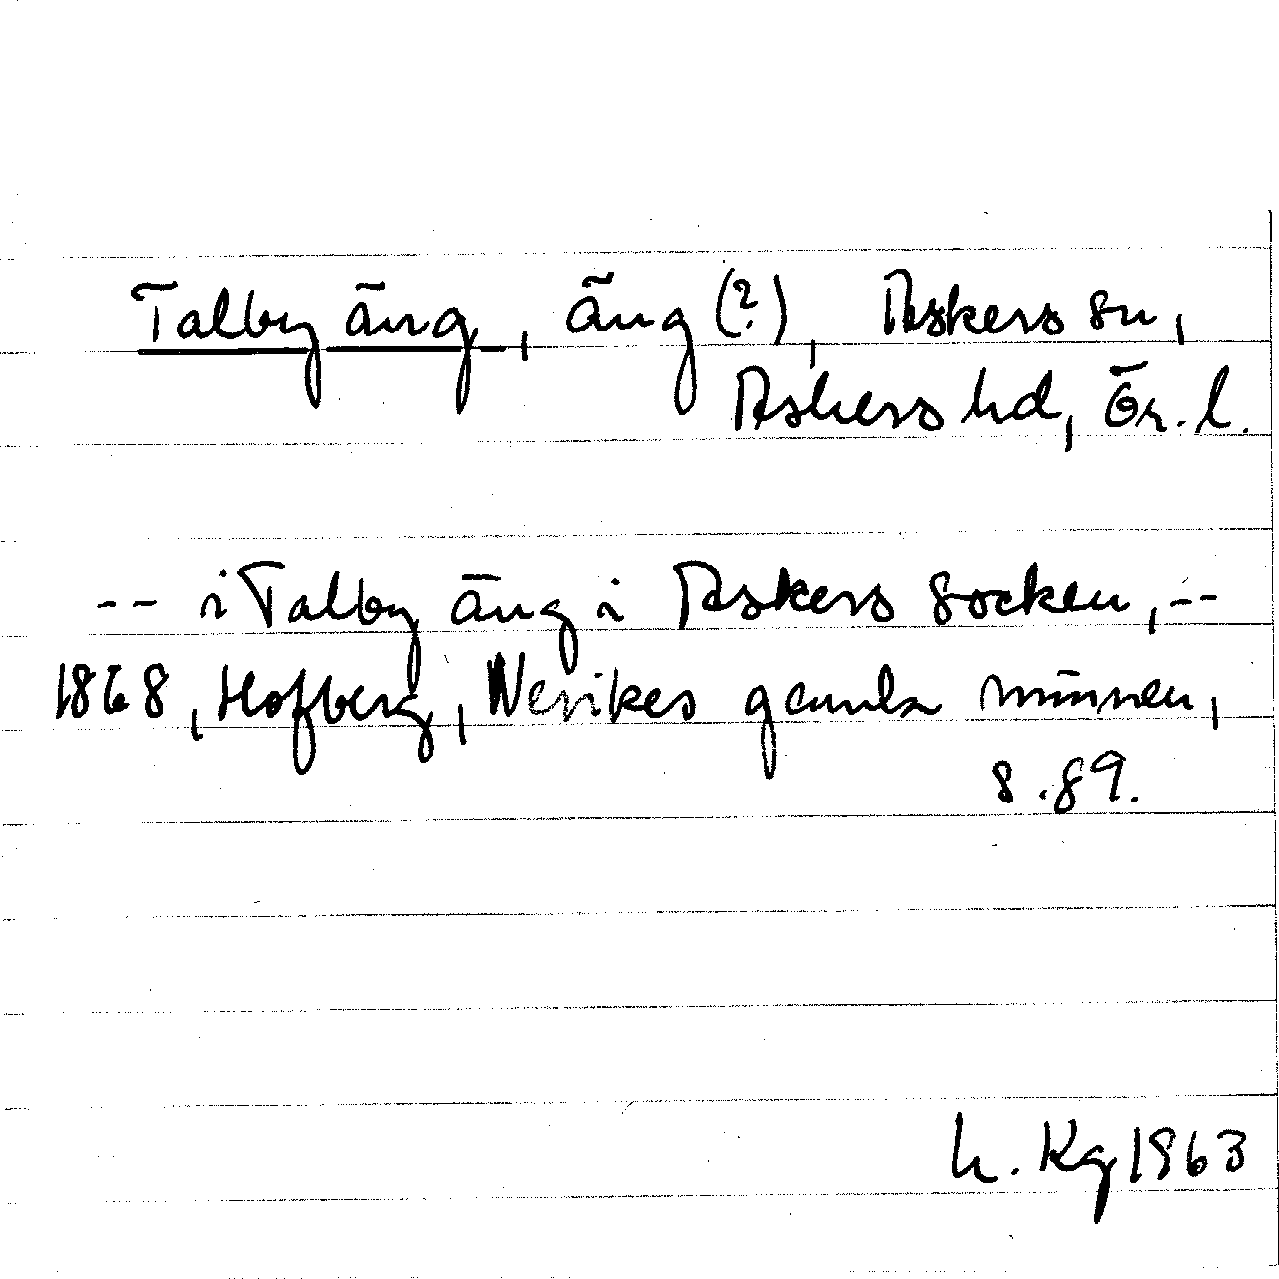 Talby äng, äng (?), Askers sn,
Askers hd, Ör. l.
-- i Talby äng i Askers socken, --
1868, Hofberg, Nerikes gamla minnen,
s. 89.
h. Kg 1963